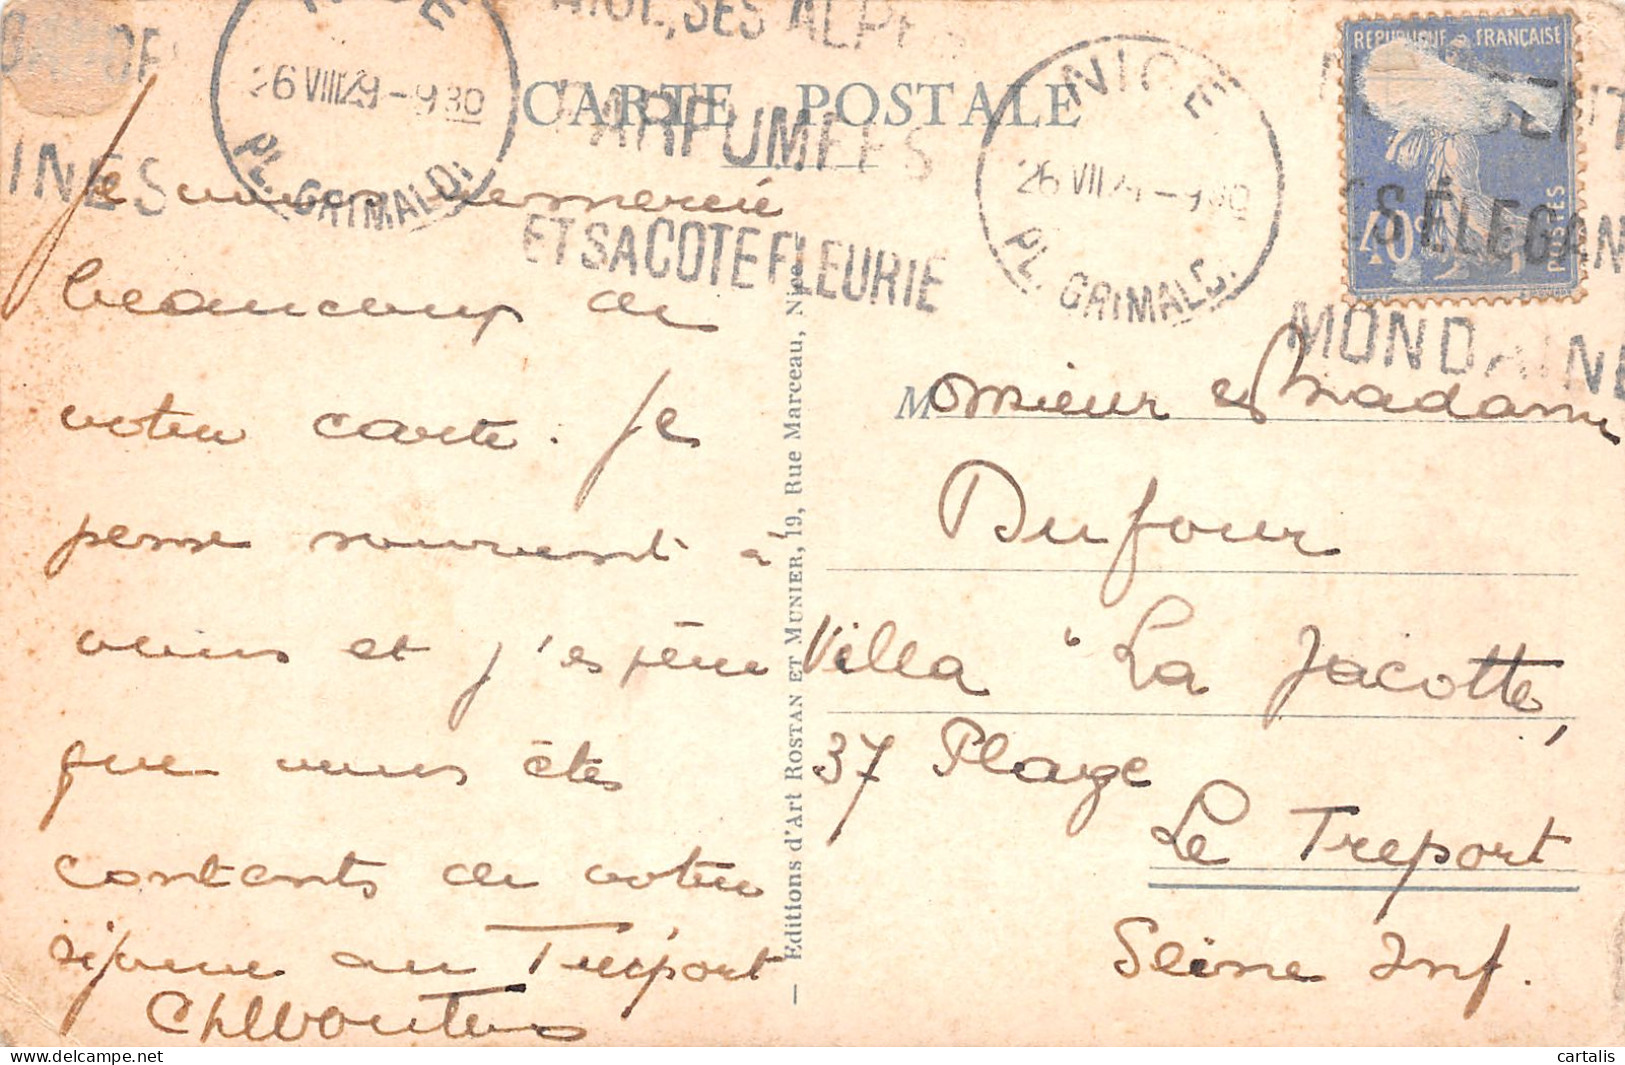 NICE
26 VIII 29 - 9 30
PL. GRIMALDI
INES
SES ALPES
PARFUMEES
ET SA COTE FLEURIE
CARTE POSTALE
NICE
26 VIII 29 - 9 30
PL. GRIMALDI
S ÉLEGAN
MONDAINE
REPUBLIQUE FRANÇAISE
40c
POSTES
Je vous remercie
beaucoup de
votre carte. Je
pense souvent à
vous et j'espère
que vous êtes
contents de votre
séjour au Tréport
Editions d'Art ROSTAN ET MUNIER, 19, Rue Marceau, Nice
Monsieur et Madame
Dufour
Villa "La Jacotte,
37 Plage
Le Treport
Seine Inf.
cartalis